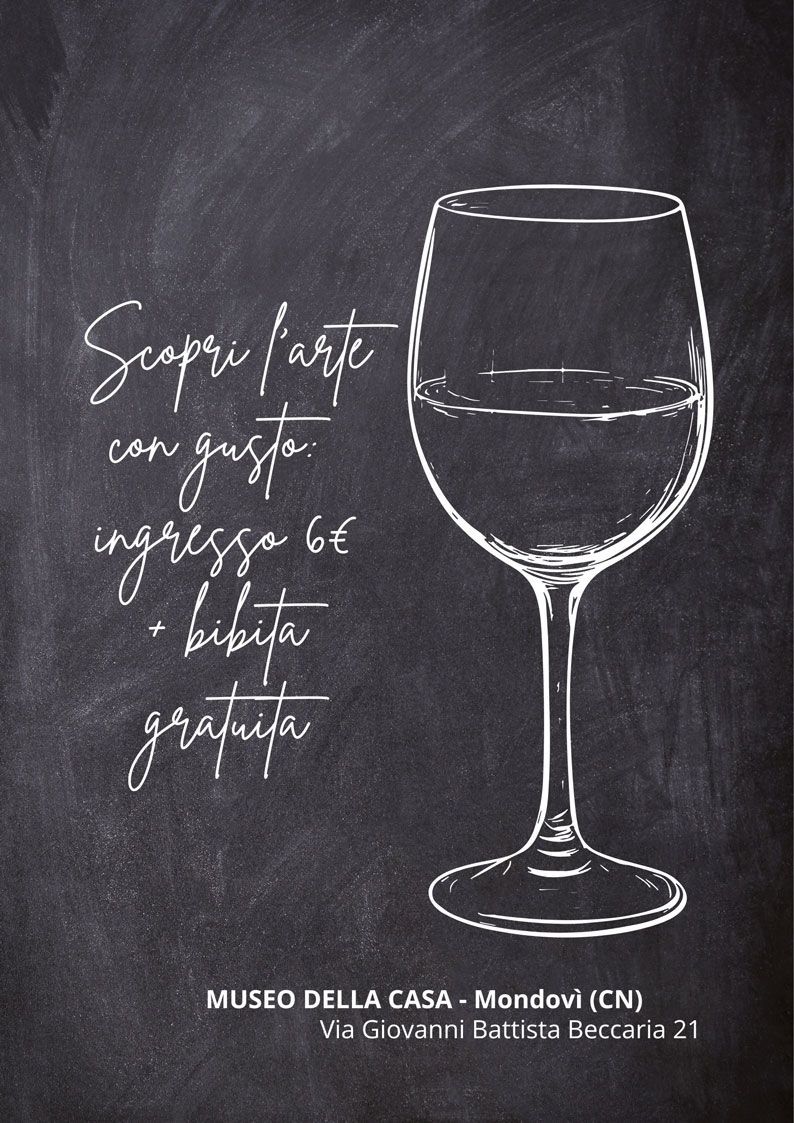 Scopri l'arte
con gusto:
ingresso 6€
+ bibita
gratuita
MUSEO DELLA CASA - Mondovì (CN)
Via Giovanni Battista Beccaria 21